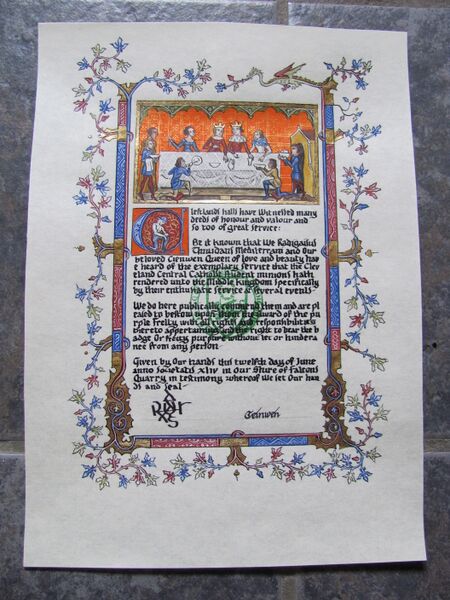 Clevelands halls have witnessed many
deeds of honour and valour and
so too of great service:
Be it known that We Radigaisus
Thrusidans Mediterran and our
beloved Cienwen Queen of love and beauty hav
e heard of the exemplary service that the Clev
eland Central Catholic Student minions hath
rendered unto the Middle Kingdom specifically
by their enthusiastic service at several events.
We do here publically commend them and are pl
eased to bestow upon them the award of the pu
rple fretty with all rights and responsibilities
thereto appertaining and the right to bear the b
adge Or fretty purpure without let or hindera
nce from any person.
Given by our hands this twelfth day of June
anno societatis XLIV in our Shire of Falcons
Quarry in testimony whereof we set our han
ds and seal
Ceinwen